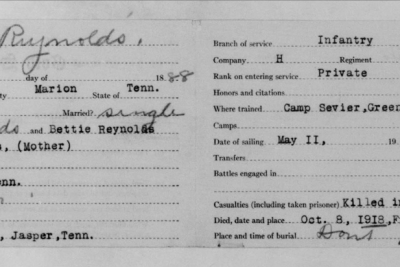 Reynolds.
day of 1888
Marion State of Tenn.
Married? single
and Bettie Reynolds
, (Mother)
nn.
, Jasper, Tenn.
Branch of service Infantry
Company H Regiment
Rank on entering service Private
Honors and citations
Where trained Camp Sevier, Green
Camps
Date of sailing May II, 19
Transfers
Battles engaged in
Casualties (including taken prisoner) Killed in
Died, date and place Oct. 8, 1918, F
Place and time of burial Dont